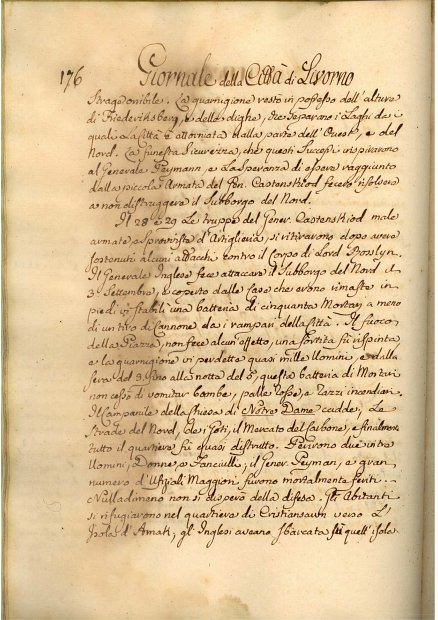 176 Giornale della Città di Livorno
Strage onibile. La guarnigione restò in possesso dell'alture
di Friederiksberg, e delle dighe, che separano i Laghi da i
quali la Città è attorniata dalla parte dell'Ouest, e del
Nord. La funesta sicurezza, che questi sucessi inspirarono
al Generale Peymann, e la speranza di essere raggiunto
dalla piccola Armata del Gen. Castenskiod fecero risolvere
a non distruggere il Subborgo del Nord.
Il 28 e 29 Le truppe del Gener. Castenskiod male
armate, e sprovviste d'Artiglieria, si ritirarono dopo avere
sostenuti alcuni attacchi contro il Corpo di Lord Rosslyn.
Il Generale Inglese fece attaccare il Subborgo del Nord il
3 Settembre, e coperto dalle Case che erano rimaste in
piedi vi stabilì una batteria di cinquanta Mortari a meno
di un tiro di Cannone da i rampari della Città. Il fuoco
della Piazza, non fece alcun effetto, una sortita fù respinta
e la guarnigione vi perdette quasi mille Uomini, e dalla
sera del 3. fino alla notta del 5, questa batteria di Mortari
non cessò di vomitar bombe, palle rosse, e razzi incendiari.
Il Campanile della Chiesa di Notre Dame cadde; Le
Strade del Nord, de i Poti, il Mercato del Carbone, e finalmente
tutto il quartiere fù quasi distrutto. Perirono due mila
Uomini, Donne, e Fanciulli; il Gener. Peyman, e gran
numero d'Ufiziali Maggiori furono mortalmente feriti.
Nulladimeno non si disperò della difesa. Gli Abitanti
si rifugiarono nel quartiere di Cristianhaun verso L'
Isola d'Amak; gl'Inglesi aveano sbarcata sù quell'isola